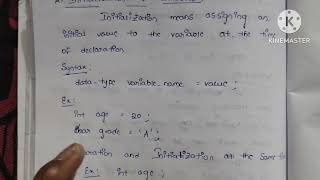 Initialization means assigning an
initial value to the variable at the time
of declaration
Syntax:
data-type variable-name = value;
Ex:
int age = 20;
char grade = 'A';
and Initialization at the same
Ex: int age;
Made with
KINEMASTER